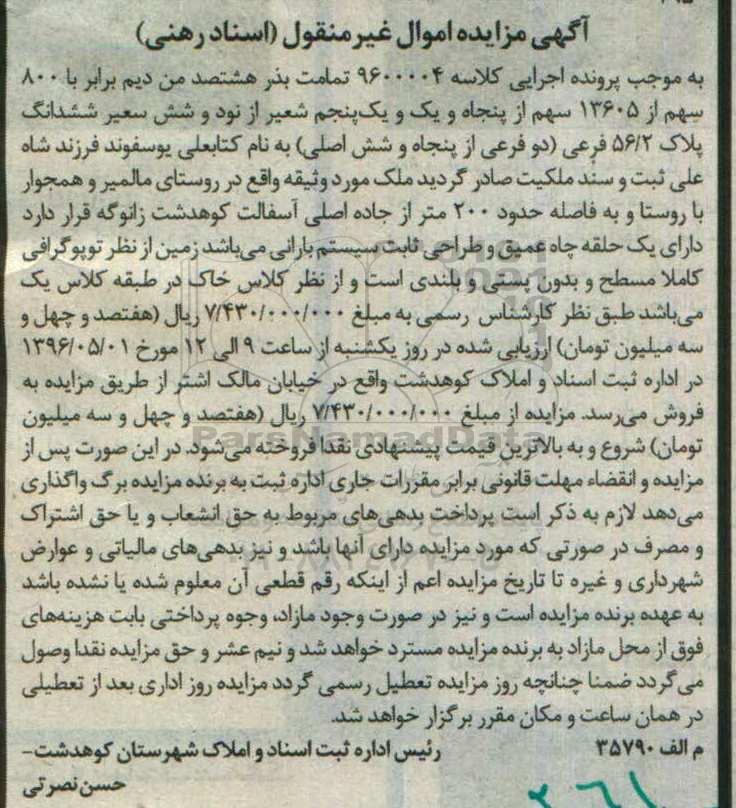 آگهی مزایده اموال غیرمنقول (اسناد رهنی)
به موجب پرونده اجرایی کلاسه ۹۶۰۰۰۰۴ تمامت بذر هشتصد من دیم برابر با ۸۰۰
سهم از ۱۳۶۰۵ سهم از پنجاه و یک و یک‌پنجم شعیر از نود و شش سعیر ششدانگ
پلاک ۵۶/۲ فرعی (دو فرعی از پنجاه و شش اصلی) به نام کتابعلی یوسفوند فرزند شاه
علی ثبت و سند ملکیت صادر گردید ملک مورد وثیقه واقع در روستای مالمیر و همجوار
با روستا و به فاصله حدود ۲۰۰ متر از جاده اصلی آسفالت کوهدشت زانوگه قرار دارد
دارای یک حلقه چاه عمیق و طراحی ثابت سیستم بارانی می‌باشد زمین از نظر توپوگرافی
کاملا مسطح و بدون پستی و بلندی است و از نظر کلاس خاک در طبقه کلاس یک
می‌باشد طبق نظر کارشناس رسمی به مبلغ ۷/۴۳۰/۰۰۰/۰۰۰ ریال (هفتصد و چهل و
سه میلیون تومان) ارزیابی شده در روز یکشنبه از ساعت ۹ الی ۱۲ مورخ ۱۳۹۶/۰۵/۰۱
در اداره ثبت اسناد و املاک کوهدشت واقع در خیابان مالک اشتر از طریق مزایده به
فروش می‌رسد. مزایده از مبلغ ۷/۴۳۰/۰۰۰/۰۰۰ ریال (هفتصد و چهل و سه میلیون
تومان) شروع و به بالاترین قیمت پیشنهادی نقدا فروخته می‌شود. در این صورت پس از
مزایده و انقضاء مهلت قانونی برابر مقررات جاری اداره ثبت به برنده مزایده برگ واگذاری
می‌دهد لازم به ذکر است پرداخت بدهی‌های مربوط به حق انشعاب و یا حق اشتراک
و مصرف در صورتی که مورد مزایده دارای آنها باشد و نیز بدهی‌های مالیاتی و عوارض
شهرداری و غیره تا تاریخ مزایده اعم از اینکه رقم قطعی آن معلوم شده یا نشده باشد
به عهده برنده مزایده است و نیز در صورت وجود مازاد، وجوه پرداختی بابت هزینه‌های
فوق از محل مازاد به برنده مزایده مسترد خواهد شد و نیم عشر و حق مزایده نقدا وصول
می‌گردد ضمنا چنانچه روز مزایده تعطیل رسمی گردد مزایده روز اداری بعد از تعطیلی
در همان ساعت و مکان مقرر برگزار خواهد شد.
م الف ۳۵۷۹۰ رئیس اداره ثبت اسناد و املاک شهرستان کوهدشت–
حسن نصرتی
ParsNamadData